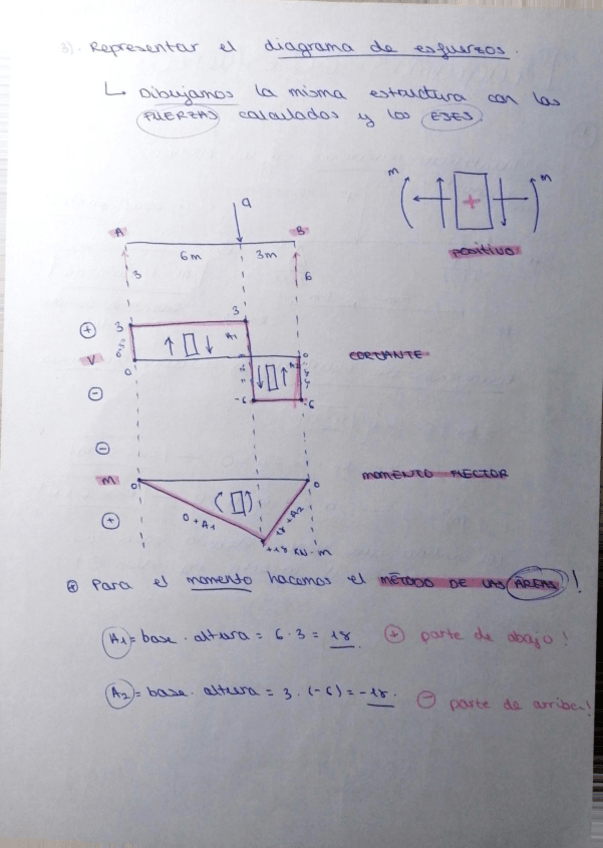 3). Representar el diagrama de esfuerzos.
↳ Dibujamos la misma estructura con las
FUERZAS calculadas y los EJES
m m
+
positivo
9
A B
6m 3m
3 6
+ 3 3
A1
V 0 0
CORTANTE
- -6 -6
-
M 0 0
MOMENTO FLECTOR
+ 0 + A1 18 + A2
+18 KN·m
Para el momento hacemos el MÉTODO DE LAS ÁREAS!
A1 = base · altura = 6 · 3 = 18 + parte de abajo!
A2 = base · altura = 3 · (-6) = -18. - parte de arriba!